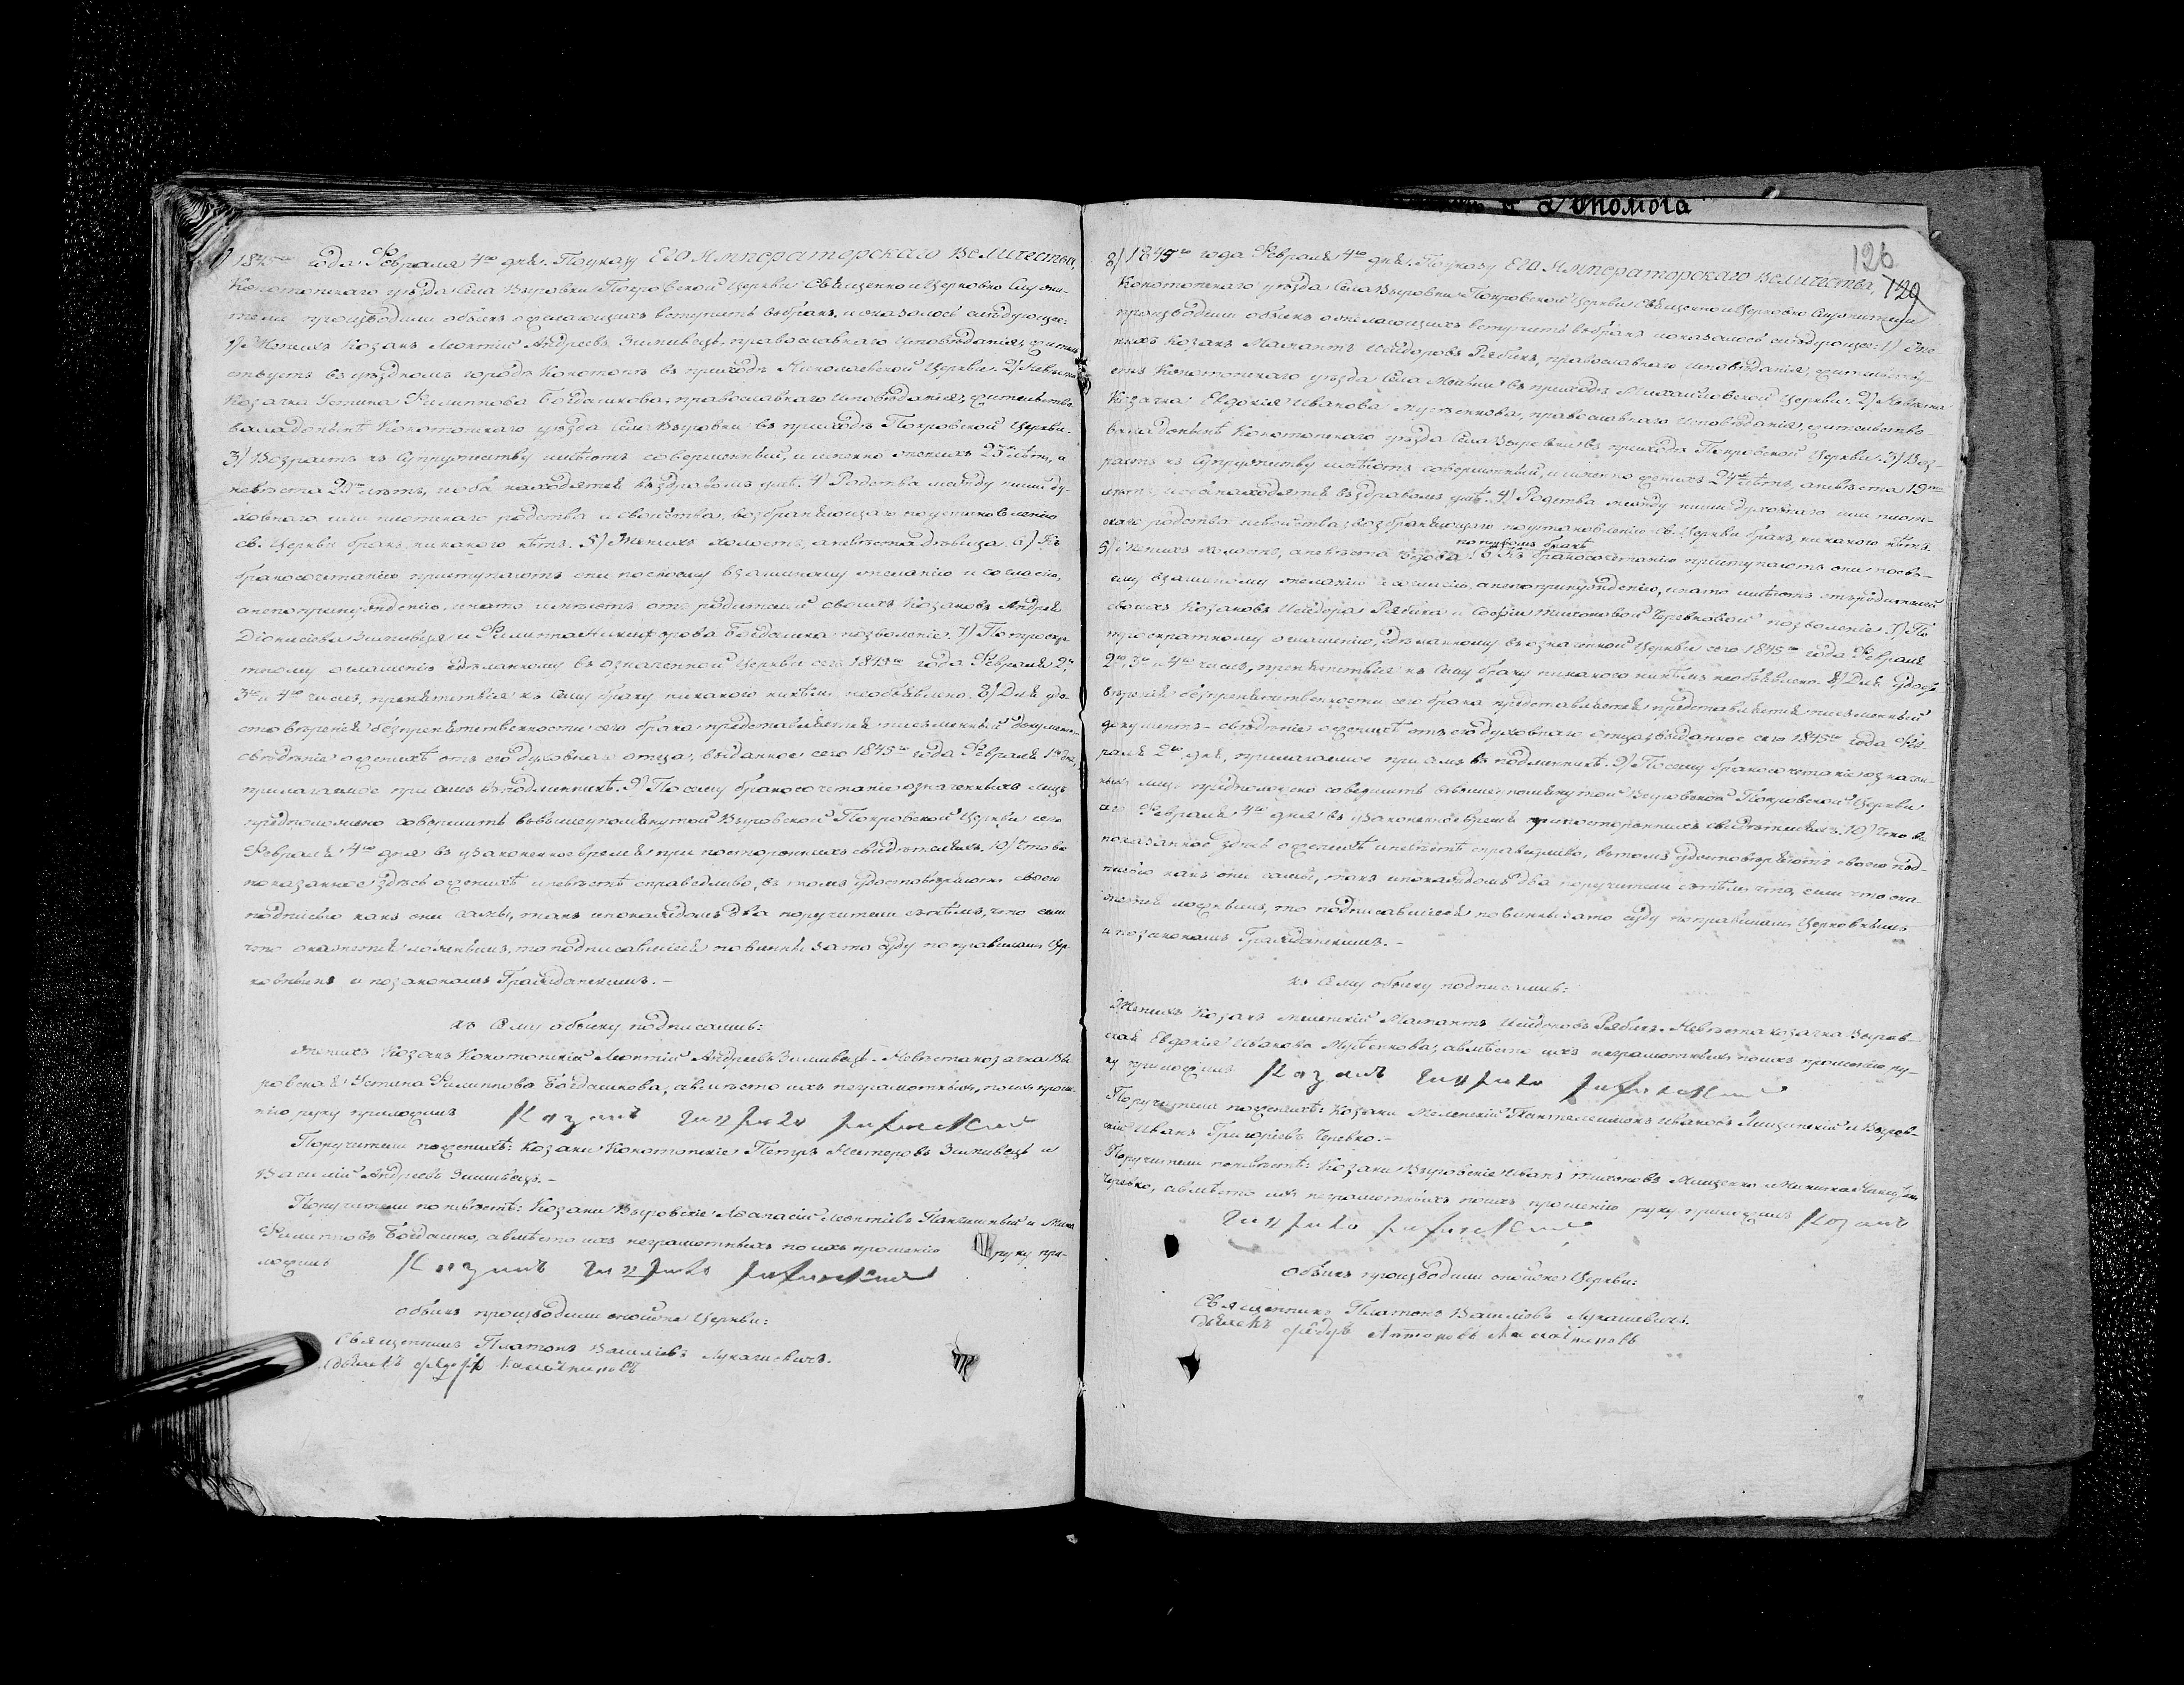 1845го года Февраля 4го дня. По указу Его Императорскаго Величества,
Конотопскаго уѣзда села Выровки Покровской Церкви Священно и Церковно Служи-
тели производили обыскъ о желающихъ вступить въ бракъ, и оказалось слѣдующее:
1) Женихъ Козакъ Леонтий Андреевъ Зинивецъ, православнаго исповѣданія, житель-
ствуетъ въ уѣздномъ городѣ Конотопѣ въ приходѣ Николаевской Церкви. 2) Невѣста
Козачка Устина Филиппова Богдашкова, православнаго исповѣданія, жительство-
вала донынѣ Конотопскаго уѣзда Села Выровки въ приходѣ Покровской Церкви.
3) Возрастъ къ Супружеству имѣютъ совершенный, и именно женихъ 23 лѣтъ, а
невѣста лѣтъ, и оба находятся въ здравомъ умѣ. 4) Родства между ними ду-
ховнаго или плотскаго родства и свойства, возбраняющаго по установленію
св. Церкви бракъ, никакого нѣтъ. 5) Женихъ холостъ, а невѣста дѣвица. 6) Къ
бракосочетанію приступаютъ они по своему взаимному желанію и согласію,
а не по принужденію, и на то имѣютъ отъ родителей своихъ Козаковъ Андрея
Діонисіева Зинивца и Филиппа Никифорова Богдашка позволеніе. 7) По троекра-
тному оглашенію сдѣланному въ означенной Церкви сего 1845го года Февраля 2го,
3го и 4го числъ, препятствія къ сему браку никакого никѣмъ не объявлено. 8) Для удо-
стовѣренія безпрепятственности сего брака представляется письменный документъ-
свѣдѣніе о женихѣ отъ его духовнаго отца, выданное сего 1845го года Февраля 1го дня,
прилагаемое при семъ въ подлинникѣ. 9) Посему бракосочетаніе означенныхъ лицъ
предположено совершить въ вышеупомянутой Выровской Покровской Церкви сего
Февраля 4го дня въ узаконенное время при постороннихъ свидѣтеляхъ. 10) Что все
показанное здѣсь о женихѣ и невѣстѣ справедливо, въ томъ удостовѣряютъ своею
подписью какъ они сами, такъ и по каждомъ два поручители съ тѣмъ, что если
что окажется ложнымъ, то подписавшіеся повинны за то суду по правиламъ Цер-
ковнымъ и по законамъ Гражданскимъ. -
къ сему обыску подписались:
Женихъ Козакъ Конотопскій Леонтий Андреевъ Зинивецъ. Невѣста козачка Вы-
ровская Устина Филиппова Богдашкова, а вмѣсто ихъ неграмотныхъ, по ихъ проше-
нію руку приложилъ Козакъ
Поручители по женихѣ: Козаки Конотопскіе Петръ Зинивецъ и
Василій Андреевъ Зинивецъ. -
Поручители по невѣстѣ: Козаки Выровскіе Аѳанасій Леонтіевъ и
Филипповъ Богдашко, а вмѣсто ихъ неграмотныхъ по ихъ прошенію руку при-
ложилъ Козакъ
Обыскъ производили оной же Церкви:
Священникъ Платонъ Васильевъ Лукашевичъ.
2) 1845го года Февраля 4го дня. По указу Его Императорскаго Величества,
126
129
Конотопскаго уѣзда Села Выровки Покровской Церкви Священно и Церковно Служители
производили обыскъ о желающихъ вступить въ бракъ и оказалось слѣдующее: 1) Же-
нихъ Козакъ Мамантъ Исидоровъ Рябика, православнаго исповѣданія, жительству-
етъ Конотопскаго уѣзда Села въ приходѣ Михайловской Церкви. 2) Невѣста
Козачка Евдокія Иванова православнаго исповѣданія, жительство-
вала донынѣ Конотопскаго уѣзда Села Выровки въ приходѣ Покровской Церкви. 3) Воз-
растъ къ Супружеству имѣютъ совершенный, и именно женихъ 24 лѣтъ, а невѣста 19
лѣтъ, и оба находятся въ здравомъ умѣ. 4) Родства между ними духовнаго или плот-
скаго родства и свойства, возбраняющаго по установленію св. Церкви бракъ, никакого нѣтъ.
по первомъ бракѣ
5) Женихъ холостъ, а невѣста вдова. 6) Къ бракосочетанію приступаютъ они по сво-
ему взаимному желанію и согласію, а не по принужденію, и на то имѣютъ отъ родителей
своихъ Козаковъ Исидора Рябика и Софіи Тихоновой Черевковой позволеніе. 7) По
троекратному оглашенію, сдѣланному въ означенной Церкви сего 1845го года Февраля
2го, 3го и 4го числъ, препятствія къ сему браку никакого никѣмъ не объявлено. 8) Для удосто-
вѣренія безпрепятственности сего брака представляется представляется письменный
документъ - свѣдѣніе о женихѣ отъ его духовнаго отца, выданное сего 1845го года Фев-
раля 2го дня, прилагаемое при семъ въ подлинникѣ. 9) Посему бракосочетаніе означен-
ныхъ лицъ предположено совершить въ вышеупомянутой Выровской Покровской Церкви
сего Февраля 4го дня въ узаконенное время при постороннихъ свидѣтеляхъ. 10) Что все
показанное здѣсь о женихѣ и невѣстѣ справедливо, въ томъ удостовѣряютъ своею под-
писью какъ они сами, такъ и по каждомъ два поручители съ тѣмъ, что, если что ока-
жется ложнымъ, то подписавшіеся повинны за то суду по правиламъ Церковнымъ
и по законамъ Гражданскимъ. -
къ сему обыску подписались:
Женихъ Козакъ Мамантъ Исидоровъ Рябика. Невѣста козачка Выров-
ская Евдокія Иванова а вмѣсто ихъ неграмотныхъ по ихъ прошенію ру-
ку приложилъ Козакъ
Поручители по женихѣ: Козаки Пантелеимонъ Ивановъ и Выров-
скій Иванъ Григорьевъ Черевко. -
Поручители по невѣстѣ: Козаки Выровскіе Иванъ Тихоновъ Мищенко и
Черевко, а вмѣсто ихъ неграмотныхъ по ихъ прошенію руку приложилъ Козакъ
Обыскъ производили оной же Церкви:
Священникъ Платонъ Васильевъ Лукашевичъ.